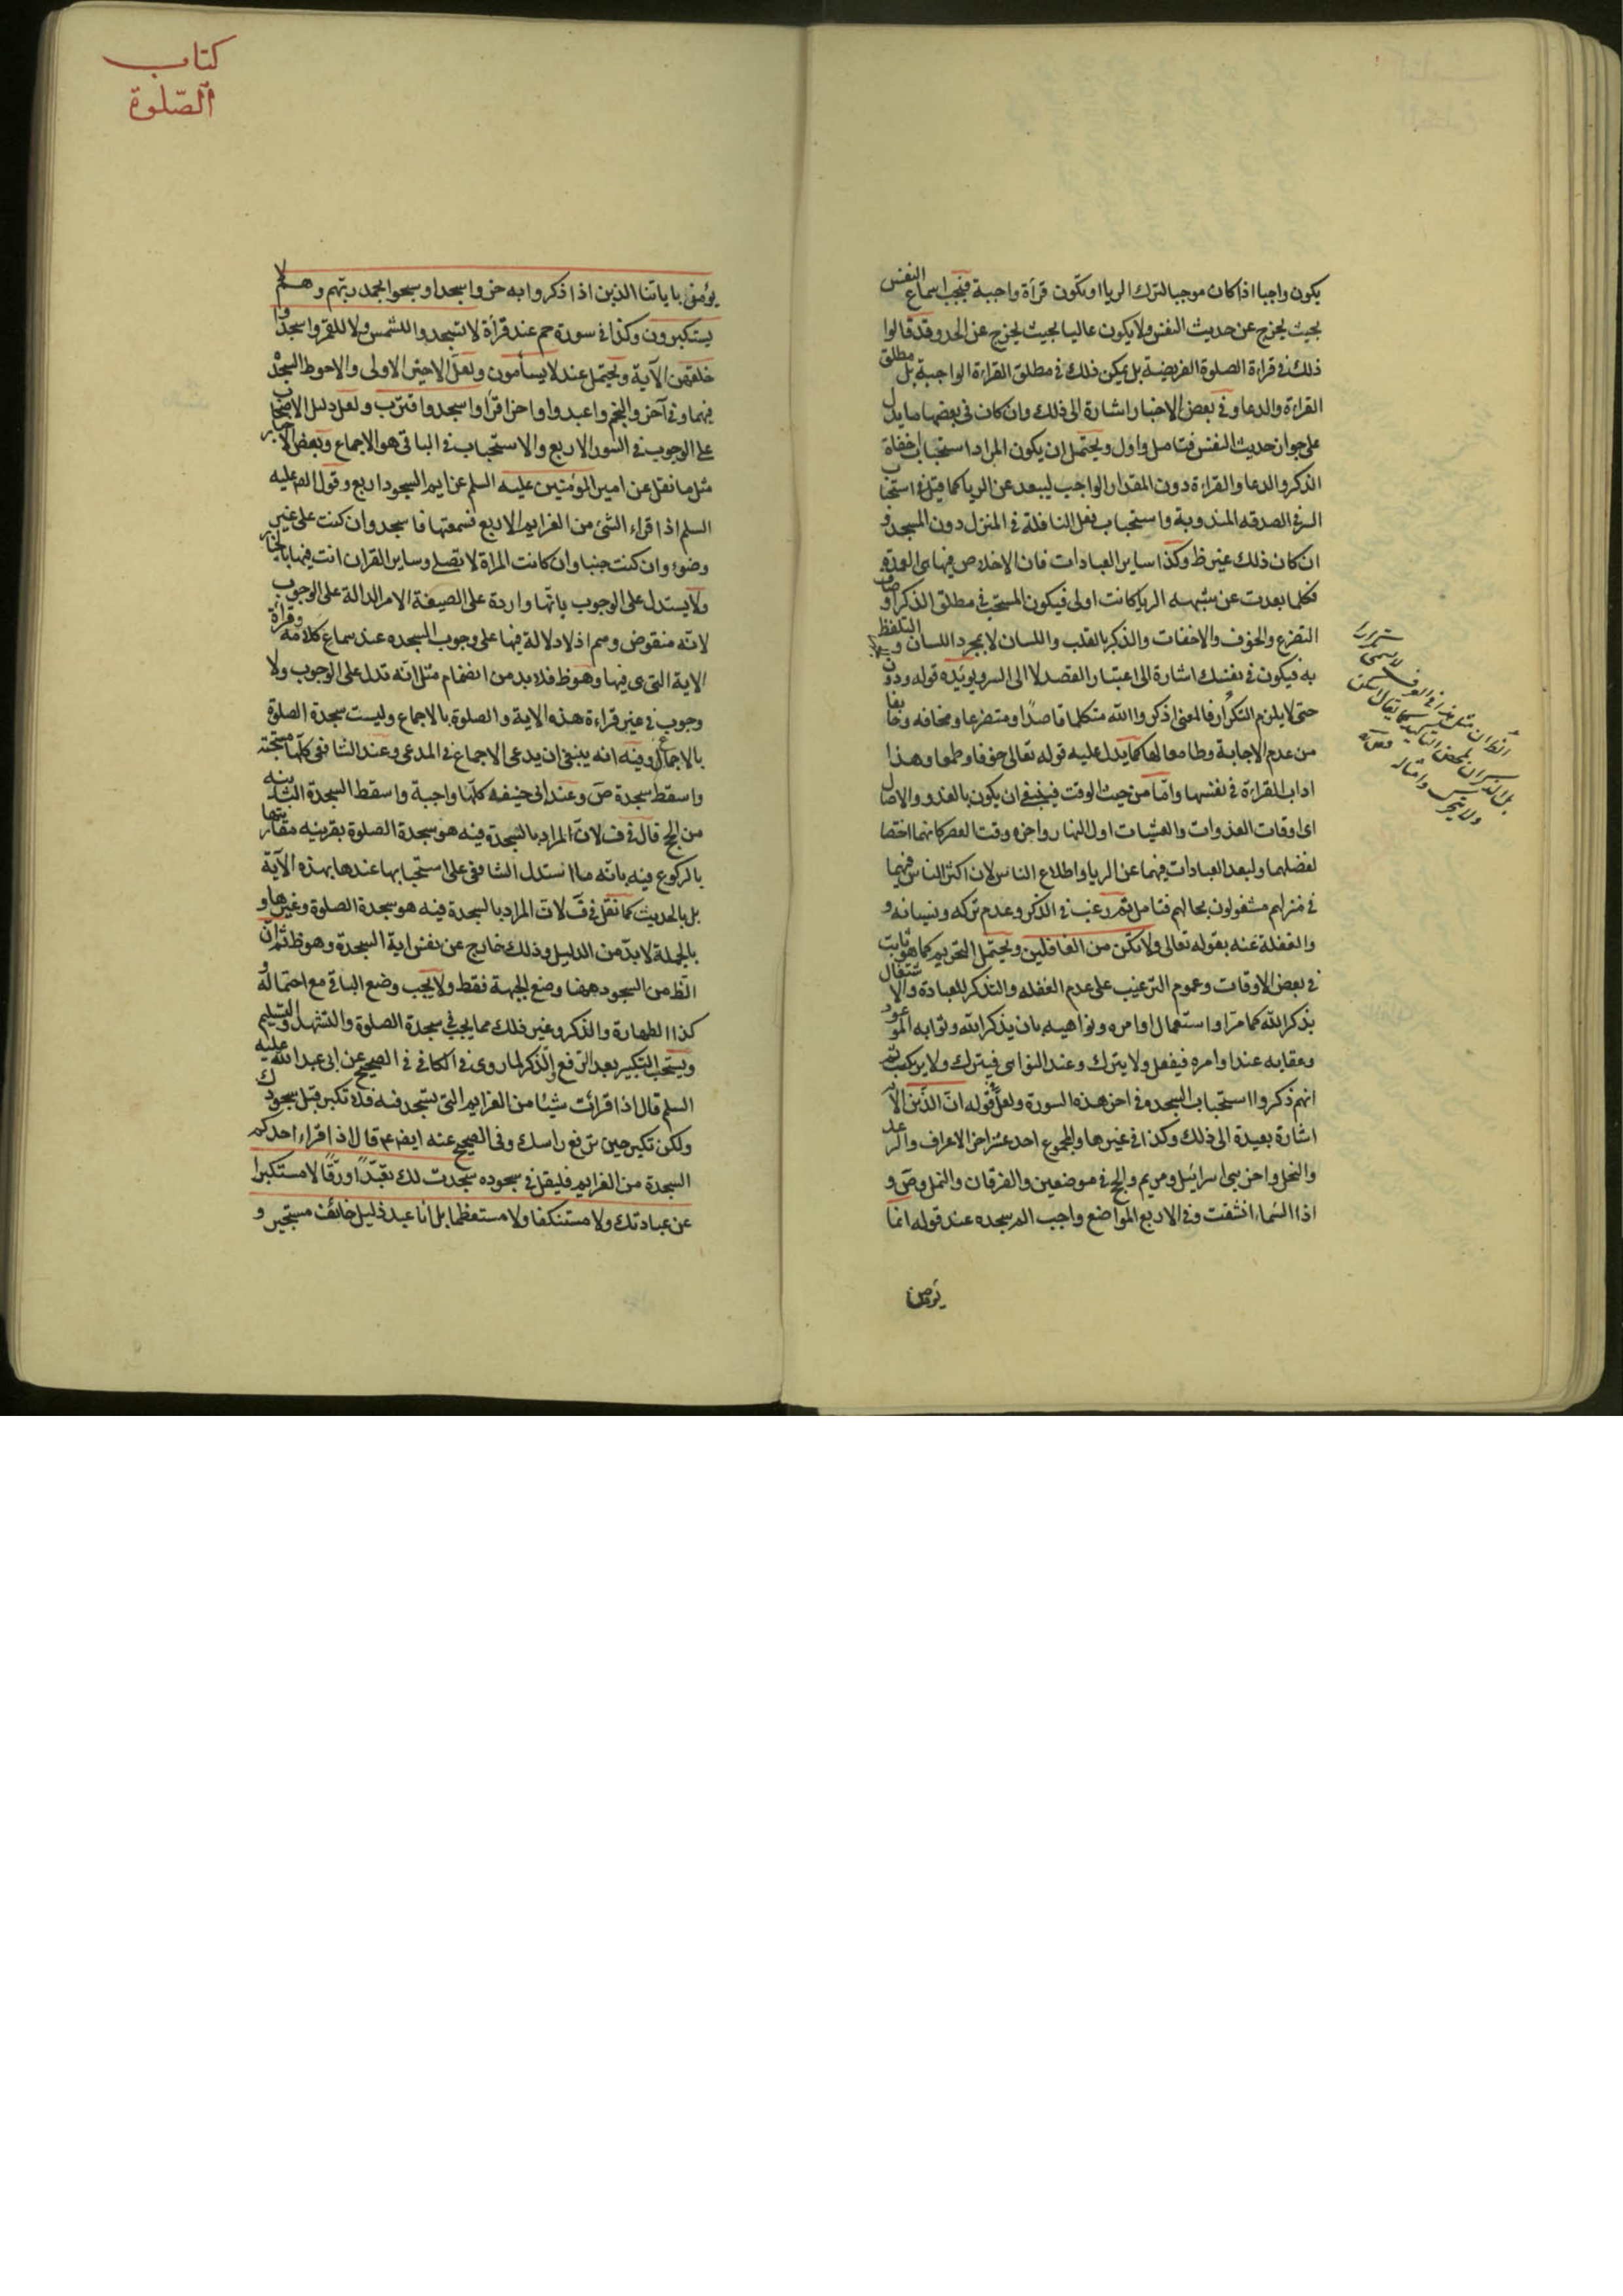 يكون واجبا اذا كان موجبا لترك الريا او تكون قرأة واجبة فيجب اسماع النفس
بحيث يخرج عن حديث النفس ولا يكون عاليا بحيث يخرج عن الحد وقد قالوا
ذلك في قراءة الصلوة الفريضة بل يمكن ذلك في مطلق القراءة الواجبة بل مطلق
القراءة والدعا وفي بعض الاخبار اشارة الى ذلك وان كان في بعضها ما يدل
على جواز حديث النفس فتامل واول ويحتمل ان يكون المراد استحباب اخفاة
الذكر والدعا والقراءة دون المقدار الواجب ليبعد عن الريا كما قيل في استحبا
السر في الصدقه المندوبة واستحباب فعل النافلة في المنزل دون المسجد و
ان كان ذلك غير ظ وكذا ساير العبادات فان الاخلاص فيها هى العمدة
فكلما بعدت عن شبهه الريا كانت اولى فيكون المستحب في مطلق الذكر
التضرع والخوف والاخفات والذكر بالقلب واللسان لا بمجرد اللسان و التلفظ
به فيكون في نفسك اشارة الى اعتبار القصد لا الى السر ويؤيده قوله ودون
حتى لا يلزم التكرار فالمعنى اذكروا الله متكلما قاصدا ومتضرعا ومخافه وخايفا
من عدم الاجابة وطامعا لها كما يدل عليه قوله تعالى خوفا وطمعا وهذا
اداب القراءة في نفسها واما من حيث الوقت فينبغي ان يكون بالغدو والاصال
اى اوقات الغدوات والعشيات اول النهار واخره وقت العصر كانهما اختصا
لفضلهما ولبعد العبادات فيهما عن الريا واطلاع الناس لان اكثر الناس فيهما
في منزلهم مشغولون بحالهم فتامل ثم رغب في الذكر وعدم تركه ونسيانه و
والغفلة عنه بقوله تعالى ولا تكن من الغافلين ويحتمل التحريم كما هو ثابت
في بعض الاوقات وعموم الترغيب على عدم الغفله والتذكر للعبادة والاشتغال
بذكر الله كما مر او استعمال اوامره ونواهيه بان يذكر الله وثوابه الموعود
وعقابه عند اوامره فيفعل ولا يترك وعند النواهى فيترك ولا يرتكب ثم
انهم ذكروا استحباب السجده في اخر هذه السورة ولعل قوله ان الذين الآية
اشارة بعيدة الى ذلك وكذا في غيرها والمجموع احد عشر اخر الاعراف والرعد
والنحل واخر بنى اسرائيل ومريم والحج في موضعين والفرقان والنمل وص و
اذا السماء انشقت وفي الاربع المواضع واجب الم سجده عند قوله انما
يؤمن
كتاب
الصّلوة
يؤمن باياتنا الذين اذا ذكروا بها خروا سجدا وسبحوا بحمد ربهم وهم لا
يستكبرون وكذا في سورة حم عند قرأة لا تسجدوا للشمس ولا للقمر واسجدوا
خلقهن الآية ويحتمل عند لا يسأمون ولعل الاخير الاولى والاحوط السجدة
فيهما وفي آخر والنجم واعبدوا واخر اقرا واسجد واقترب ولعل دليل الاصحاب
على الوجوب في السور الاربع والاستحباب في الباقى هو الاجماع وبعض الاخبار
مثل ما نقل عن امير المؤمنين عليه السلم عزايم السجود اربع وقول الص عليه
السلم اذا قراء الشئ من العزايم الاربع فسمعتها فاسجد وان كنت على غير
وضوء وان كنت جنبا وان كانت المراة لا تصلى وساير القران انت فيها بالخيار
ولا يستدل على الوجوب بانها واردة على الصيغة الامر الدالة على الوجوب
لانه منقوض ومم اذ لا دلالة فيها على وجوب السجده عند سماع كلامه وقرأة
الاية التى هى فيها وهو ظ فلا بد من انضمام مثل انه تدل على الوجوب ولا
وجوب في غير قراءة هذه الاية والصلوة بالاجماع وليست سجدة الصلوة
بالاجماع وفيه انه ينبغى ان يدعى الاجماع في المدعى وعند الشافعى كلها مستحبة
واسقط سجدة ص وعند ابى حنيفه كلها واجبة واسقط السجدة الثانية
من الحج قال في ف لان المراد بالسجدة فيه هو سجدة الصلوة بقرينه مقارنتها
بالركوع فيه بانه ما استدل الشافعى على استحبابها عندها بهذه الآية
بل بالحديث كما نقل في ف لان المراد بالسجدة فيه هو سجدة الصلوة وغيرها و
بالجملة لا بد من الدليل وذلك خارج عن نفس اية السجدة وهو ظ ثم ان
الظ من السجود ههنا وضع الجبهة فقط ولا يجب وضع الباقى مع احتماله و
كذا الطهارة والذكر وغير ذلك مما يجب في سجدة الصلوة والتشهد والتسليم
ويستحب التكبير بعد الرفع والذكر لما روى في الكافي في الصحيح عن ابى عبد الله عليه
السلم قال اذا قرأت شيئا من العزايم التى تسجد فيه فلا تكبر قبل سجودك
ولكن تكبر حين ترفع راسك وفي الصحيح عنه ايضا ع قال اذا قراء احدكم
السجدة من العزايم فليقل في سجوده سجدت لك تعبّدا ورقّا لا مستكبرا
عن عبادتك ولا مستنكفا ولا مستعظما بل انا عبد ذليل خائف مستجير و